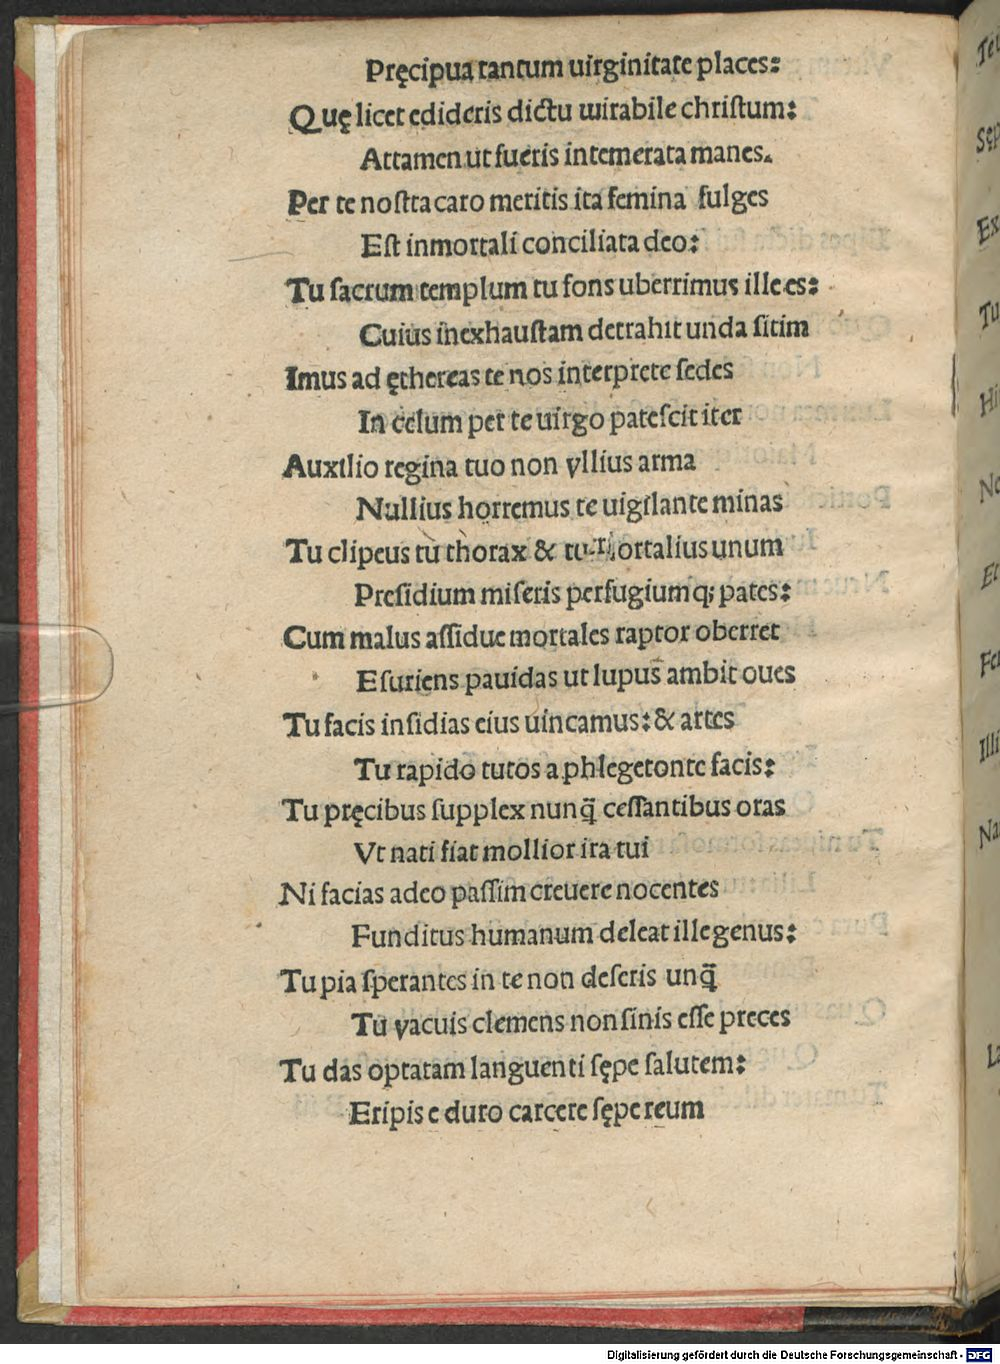 Pręcipua tantum uirginitate places:
Quę licet edideris dictu mirabile chriſtum:
Attamen ut fueris intemerata manes.
Per te noſtra caro meritis ita femina fulges
Eſt inmortali conciliata deo:
Tu ſacrum templum tu fons uberrimus ille es:
Cuius inexhauſtam detrahit unda ſitim
Imus ad ęthereas te nos interprete ſedes
In celum per te uirgo pateſcit iter
Auxilio regina tuo non yllius arma
Nullius horremus te uigilante minas
Tu clipeus tu thorax & tu ortalius unum
Preſidium miſeris perfugiumq; pates:
Cum malus aſſidue mortales raptor oberret
Eſuriens pauidas ut lupus ambit oues
Tu facis inſidias eius uincamus: & artes
Tu rapido tutos a phlegetonte facis:
Tu pręcibus ſupplex nunq̃ ceſſantibus oras
Vt nati fiat mollior ira tui
Ni facias adeo paſſim creuere nocentes
Funditus humanum deleat ille genus:
Tu pia ſperantes in te non deſeris unq̃
Tu vacuis clemens non ſinis eſſe preces
Tu das optatam languenti ſępe ſalutem:
Eripis e duro carcere ſępe reum
Digitalisierung gefördert durch die Deutsche Forschungsgemeinschaft - DFG